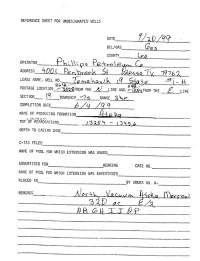 REFERENCE SHEET FOR UNDESIGNATED WELLS
DATE 9/20/99
OIL/GAS Gas
COUNTY Lea
OPERATOR Phillips Petroleum Co
ADDRESS 4001 Penbrook St Odessa Tx 79762
LEASE NAME, WELL NO. Tomahawk 19 State #1-H
FOOTAGE LOCATION FROM THE N LINE AND FROM THE E LINE
SECTION 19 TOWNSHIP 17s RANGE 34e
COMPLETION DATE 6/4/99
NAME OF PRODUCING FORMATION Atoka
TOP OF PERFORATIONS 13254 - 13456
DEPTH TO CASING SHOE
C-123 FILED
NAME OF POOL FOR WHICH EXTENSION WAS ASKED
ADVERTISED FOR HEARING CASE NO.
NAME OF POOL FOR WHICH EXTENSION WAS ADVERTISED
PLACED IN BY ORDER NO. R-
REMARKS North Vacuum Atoka Morrow
320 ac E/2
A B G H I J O P